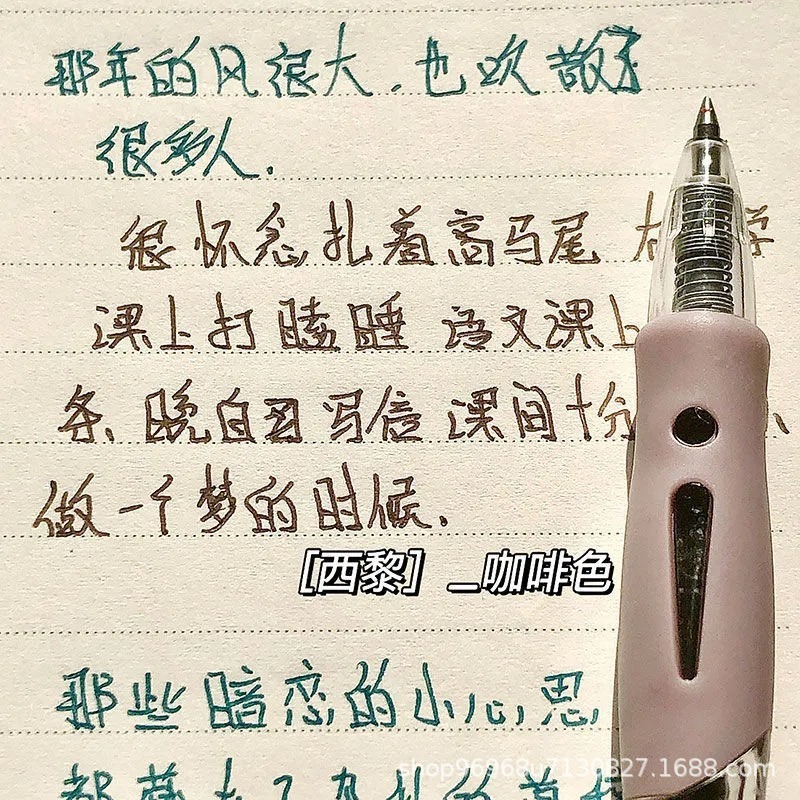 那年的风很大,也吹散了
很多人.
很怀念扎着高马尾 在 学
课上打瞌睡 语文课上
条、晚自习写信 课间十分
做一个梦的时候.
[西黎] _咖啡色
那些暗恋的小心思
都藏
shop96968u7130827.1688.com